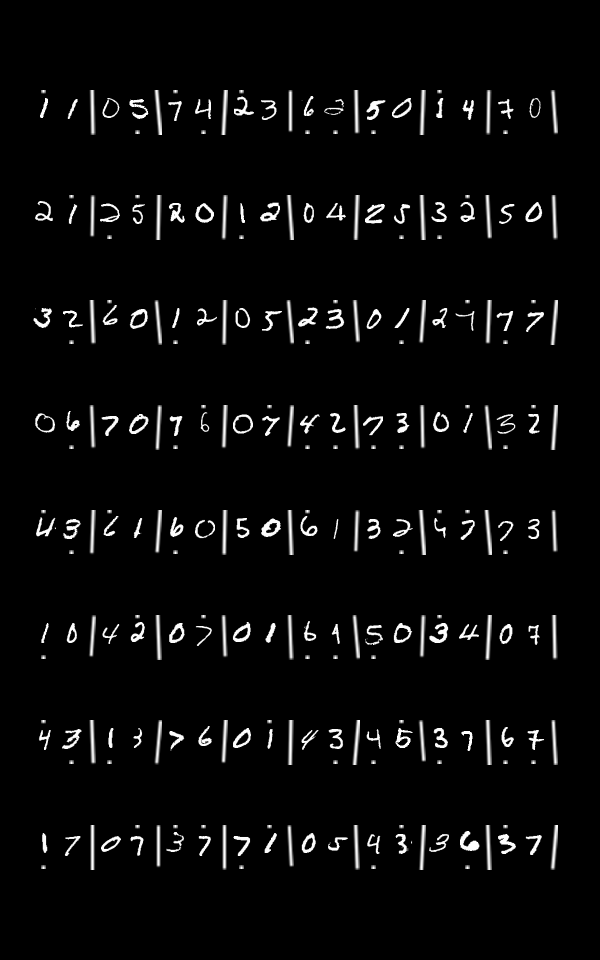 1 1 | 0 5 | 7 4 | 2 3 | 6 2 | 5 0 | 1 4 | 7 0 |
2 1 | 2 5 | 2 0 | 1 2 | 0 4 | 2 5 | 3 2 | 5 0 |
3 2 | 6 0 | 1 2 | 0 5 | 2 3 | 0 1 | 2 7 | 7 7 |
0 6 | 7 0 | 7 6 | 0 7 | 4 2 | 7 3 | 0 1 | 3 2 |
4 3 | 6 1 | 6 0 | 5 0 | 6 1 | 3 2 | 4 7 | 7 3 |
1 0 | 4 2 | 0 7 | 0 1 | 6 1 | 5 0 | 3 4 | 0 7 |
4 3 | 1 3 | 7 6 | 0 1 | 4 3 | 4 5 | 3 7 | 6 7 |
1 7 | 0 7 | 3 7 | 7 1 | 0 5 | 4 3 | 3 6 | 3 7 |